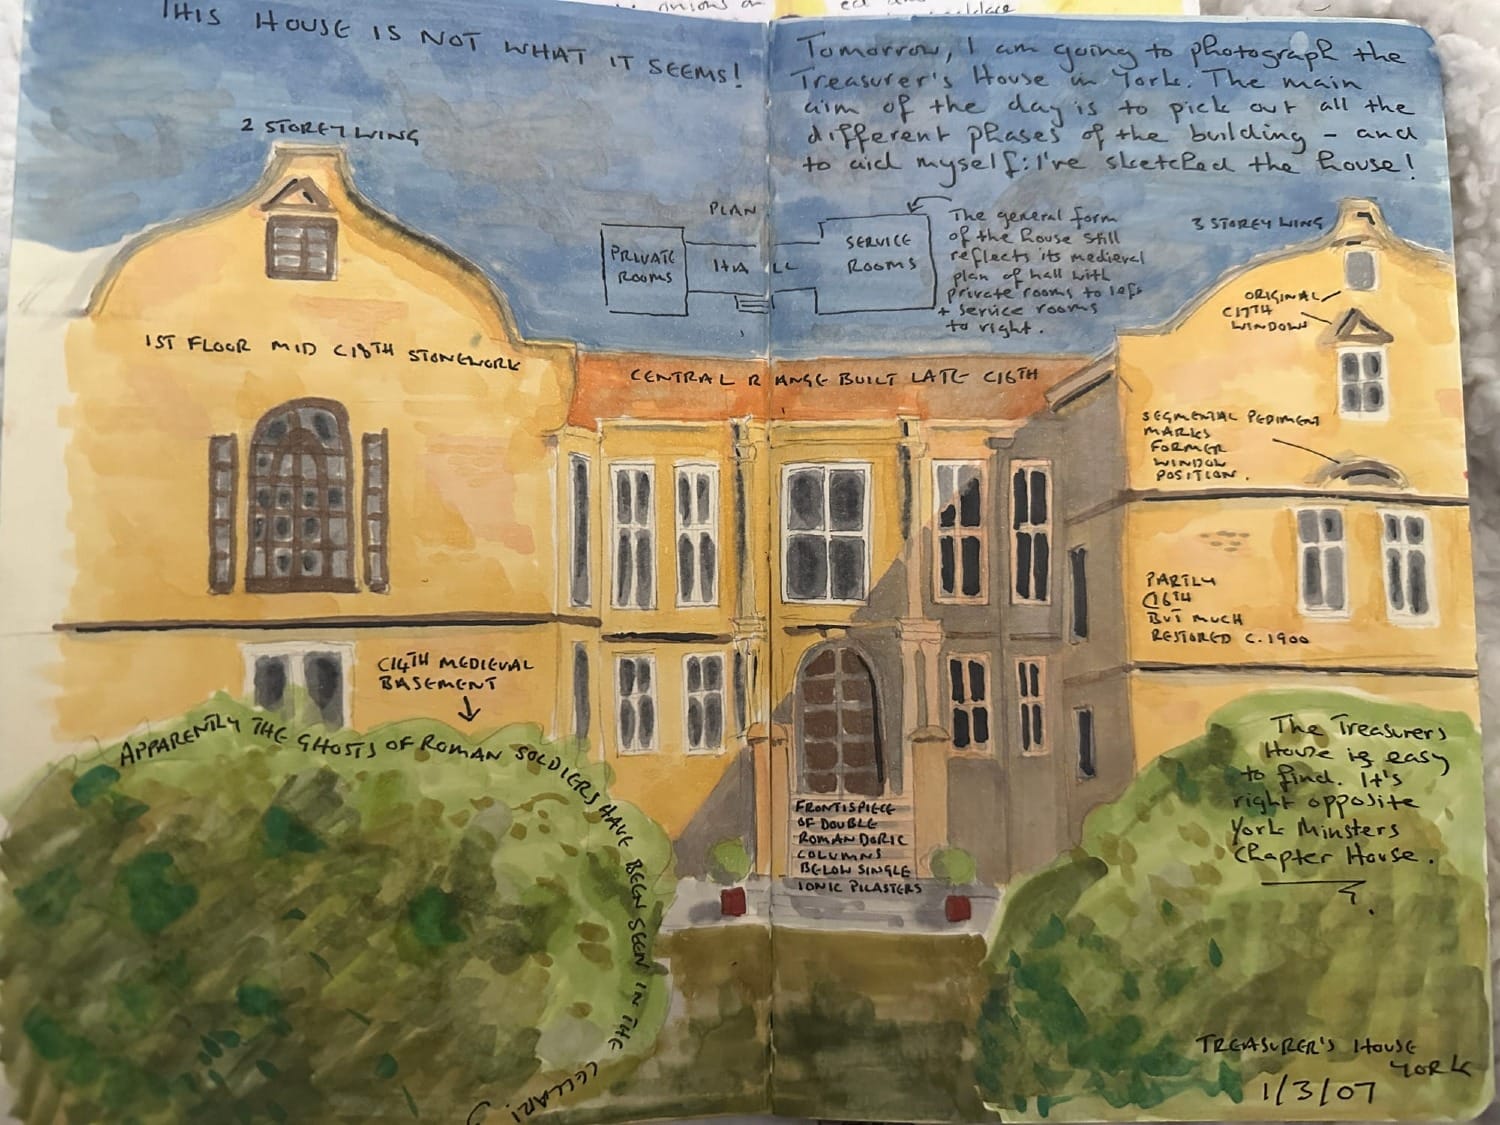 THIS HOUSE IS NOT WHAT IT SEEMS!
Tomorrow, I am going to photograph the
Treasurer's House in York. The main
aim of the day is to pick out all the
different phases of the building – and
to aid myself: I've sketched the house!
2 STOREY WING
PLAN
PRIVATE
ROOMS
HALL
SERVICE
ROOMS
The general form
of the house still
reflects its medieval
plan of hall with
private rooms to left
+ service rooms
to right.
3 STOREY WING
ORIGINAL
C17TH
WINDOW
1ST FLOOR MID C18TH STONEWORK
CENTRAL RANGE BUILT LATE C16TH
SEGMENTAL PEDIMENT
MARKS
FORMER
WINDOW
POSITION.
PARTLY
C16TH
BUT MUCH
RESTORED C.1900
C14TH MEDIEVAL
BASEMENT
APPARENTLY THE GHOSTS OF ROMAN SOLDIERS HAVE BEEN SEEN IN THE CELLAR!
FRONTISPIECE
OF DOUBLE
ROMAN DORIC
COLUMNS
BELOW SINGLE
IONIC PILASTERS
The Treasurers
House is easy
to find. It's
right opposite
York Minsters
Chapter House.
TREASURER'S HOUSE
YORK
1/3/07